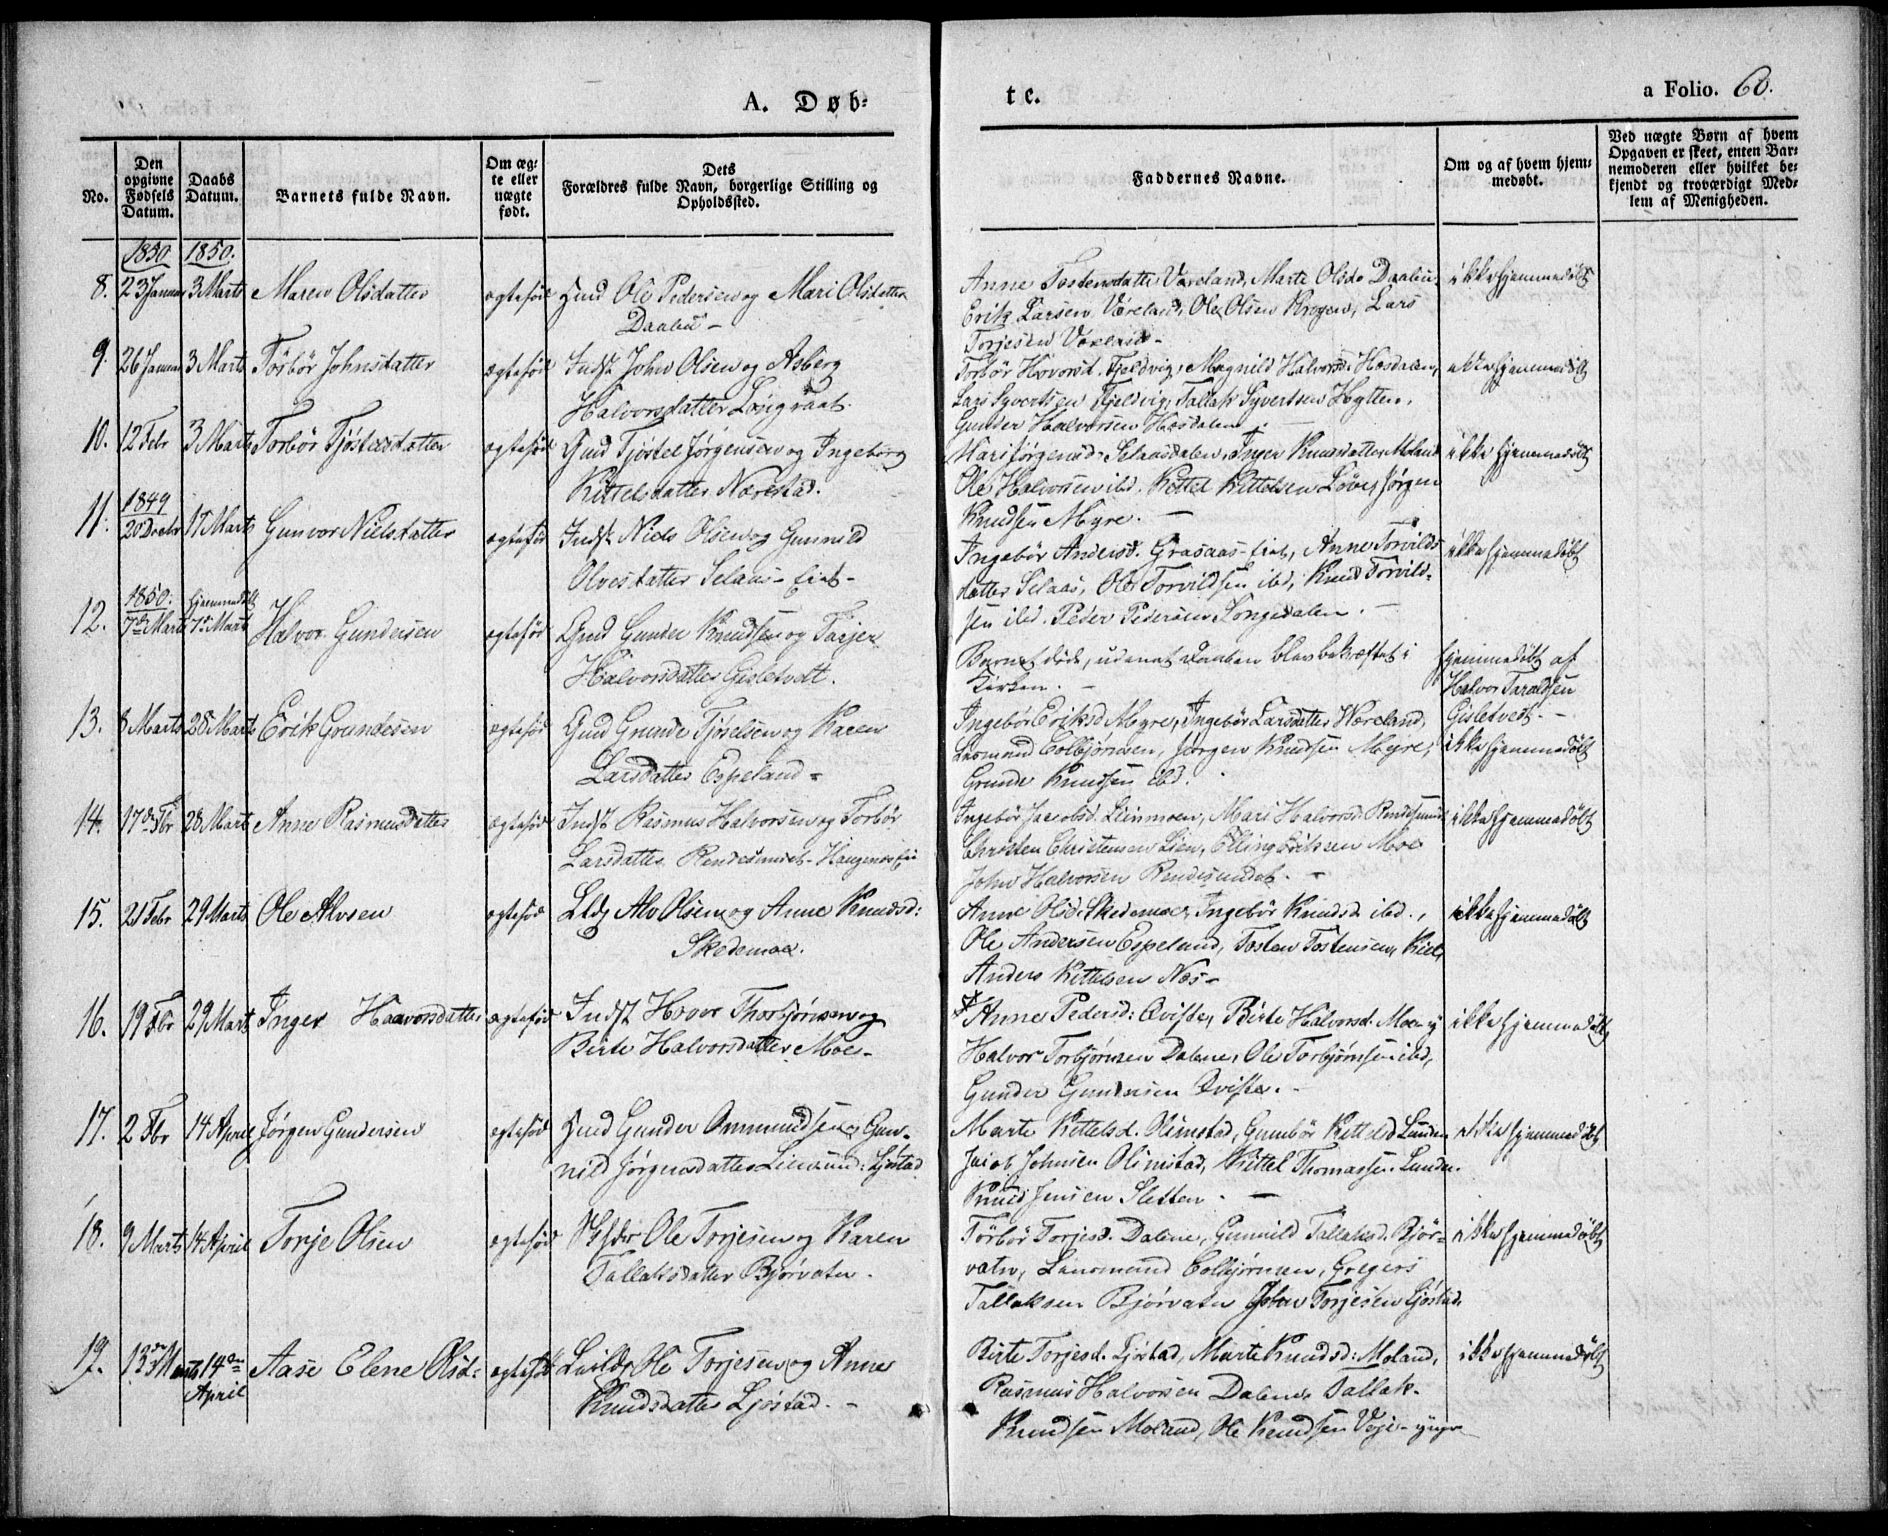 A. Døb-
te.
a Folio. 60.
No.
Den opgivne Fødsels Datum.
Daabs Datum.
Barnets fulde Navn.
Om ægte eller nægte født.
Dets Forældres fulde Navn, borgerlige Stilling og Opholdssted.
Faddernes Navne.
Om og af hvem hjemmedøbt.
Ved nægte Børn af hvem Opgaven er skeet, enten Barnemoderen eller hvilket bekjendt og troværdigt Medlem af Menigheden.
1850 1850.
8. 23 Januar 3 Marts Maren Olsdatter ægtefød Ole Pedersen og Mari Olsdatter
Daalen
Anne Tostensdatter Væreland, Marte Olsd.
Erik Larsen Væreland, Ole Olsen Krogen, Lars
Torjesen Væreland
ikke hjemmedøbt
9. 26 Januar 3 Marts Torbør Johnsdatter ægtefød Indst John Olsen og Asberg
Halvorsdatter
Torbør Hovorsd. Fjeldvig, Magnild Halvorsd. Hæsdalen,
Lars Syvertsen Fjeldvig, Tallak Syvertsen Hytten,
Gunder Halvorsen Hæsdalen.
ikke hjemmedøbt
10. 12 Febr 3 Marts Torbør Tjøstelsdatter ægtefød Gmd Tjøstel Jørgensen og Ingeborg
Kittelsdatter Nærestad.
Mari Jørgensd. Selaasdalen, Inger Knudsdatter Moland
Ole Halvorsen ibd. Kittel Kittelsen Løve, Jørgen
Knudsen Myre.
ikke hjemmedøbt
11. 1849
20 Decbr 17 Marts Gunvor Nielsdatter ægtefød Indst. Niels Olsen og Gunnild
Olvesdatter Selaas-
Ingebør Andersd. Grasaas Anne Torvilds
datter Selaas, Ole Torvildsen ibd, Knud Torvild-
sen ibd. Peder Pedersen Songedalen.
ikke hjemmedøbt
12. 1850. hjemmedøbt
7de Marts 7de Marts Halvor Gundersen ægtefød Gmd Gunder Knudsen og Torjer
Halvorsdatter Gisletvedt.
Barnet døde, uden at Daaben blev bekræftet i
Kirken.
hjemmedøbt af
Halvor Taraldsen
Gisletvedt.
13. 8 Marts 28 Marts Erik Grundesen ægtefød Gmd Grunde Tjøselsen og Karen
Larsdatter Espeland
Ingebør Eriksd Myre, Ingebør Larsdatter Væreland,
Colbjørnsen, Jørgen Knudsen Myre,
Grunde Knudsen ibd.
ikke hjemmedøbt
14. 17de Fbr 28 Marts Anne Rasmusdatter ægtefød Indst Rasmus Halvorsen og Torbør
Larsdatter
Ingebør Jacobsd. Mari Halvorsd.
Christen Christensen Lien, Elling Eriksen Moe
John Halvorsen
ikke hjemmedøbt
15. 21 Febr 29 Marts Ole Alvsen ægtefød Alv Olsen og Anne Knudsd:
Skedemoe.
Anne Olsd: Skedemoe, Ingebør Knudsd. ibd.,
Ole Andersen Espeland, Tosten Tostensen
Anders Kittelsen Næs
ikke hjemmedøbt
16. 19 Fbr 29 Marts Inger Haavorsdatter ægtefød Indst Hovor Thorbjørnsen og
Birte Halvorsdatter Moe
Anne Pedersd: Qviste, Birte Halvorsd. Moe
Halvor Torbjørnsen Dalene, Ole Torbjørnsen ibd,
Gunder Gundersen Qviste.
ikke hjemmedøbt
17. 2 Fbr 14 April Jørgen Gundersen ægtefød Gunder Ommundsen og Gun-
nild Jørgensdatter
Marte Kittelsd. Olimstad, Gunnbør Kittelsd Lunden
Jacob Johnsen Olimstad, Kittel Thomassen Lunden.
Knud Jensen Sletten.
ikke hjemmedøbt
18. 9 Marts 14 April Torje Olsen ægtefød Ole Torjesen og Karen
Tallaksdatter Bjørvatn.
Torbør Torjesd. Dalene, Gunnild Tallaksd. Bjør-
vatn, Colbjørnsen, Gregers
Tallaksen Bjørvatn John Torjesen Ljøstad.
ikke hjemmedøbt
19. 13de Marts 14de
April Aase Elene Olsd: ægtefød Ole Torjesen og Anne
Knudsdatter Ljøstad.
Birte Torjesd. Ljøstad, Marte Knudsd: Moland,
Rasmus Halvorsen Dalene, Tallak
Knudsen Moland, Ole Knudsen
ikke hjemmedøbt